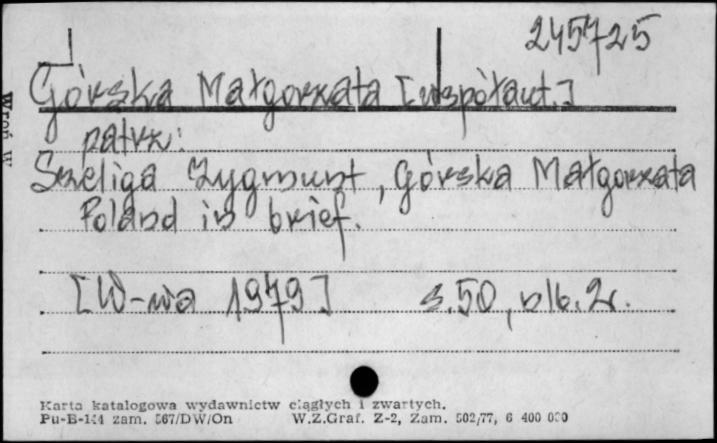 245725
Górska Małgorzata [współaut.]
patrz:
Szeliga Zygmunt, Górska Małgorzata
Poland in brief.
[W-wa 1979] s. 50, nlb. 2.
Karta katalogowa wydawnictw ciągłych i zwartych.
Pu-B-144 zam. 567/DW/On W.Z.Graf. Z-2, Zam. 502/77, 6 400 000